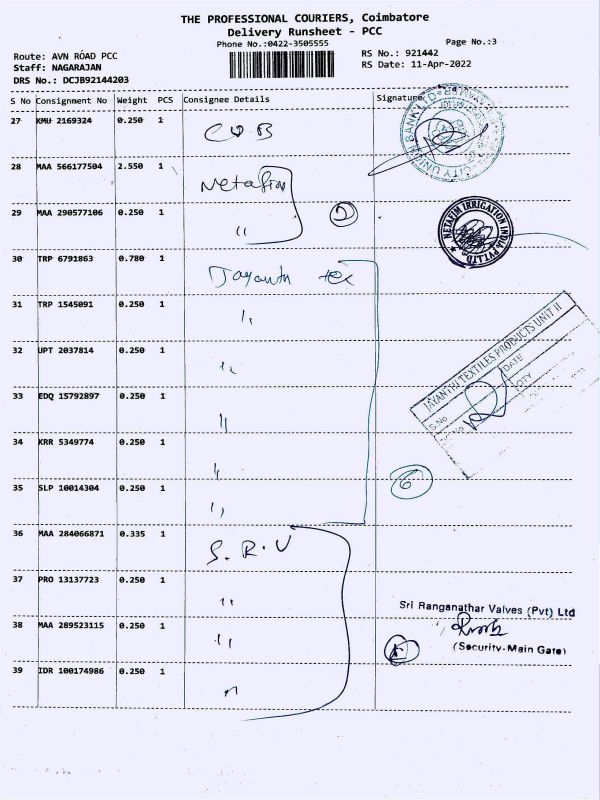 THE PROFESSIONAL COURIERS, Coimbatore
Delivery Runsheet - PCC
Phone No.:0422-3505555
Page No.:3
Route: AVN ROAD PCC
RS No.: 921442
Staff: NAGARAJAN
RS Date: 11-Apr-2022
DRS No.: DCJB92144203
S No Consignment No Weight PCS Consignee Details Signature
27 KMU 2169324 0.250 1 CUB
CITY UNION BANK LTD
28 MAA 566177504 2.550 1 Netafim
29 MAA 290577106 0.250 1 "
2
NETAFIM IRRIGATION INDIA PVT LTD
30 TRP 6791863 0.780 1 Jayanth tex
31 TRP 1545091 0.250 1 "
32 UPT 2037814 0.250 1 "
JAYANTHI TEXTILES PRODUCTS UNIT II
DATE
S.No
CITY
33 EDQ 15792897 0.250 1 "
34 KRR 5349774 0.250 1 "
35 SLP 10014304 0.250 1 "
6
36 MAA 284066871 0.335 1 S.R.V
37 PRO 13137723 0.250 1 "
Sri Ranganathar Valves (Pvt) Ltd
38 MAA 289523115 0.250 1 "
(Security-Main Gate)
39 IDR 100174986 0.250 1 "